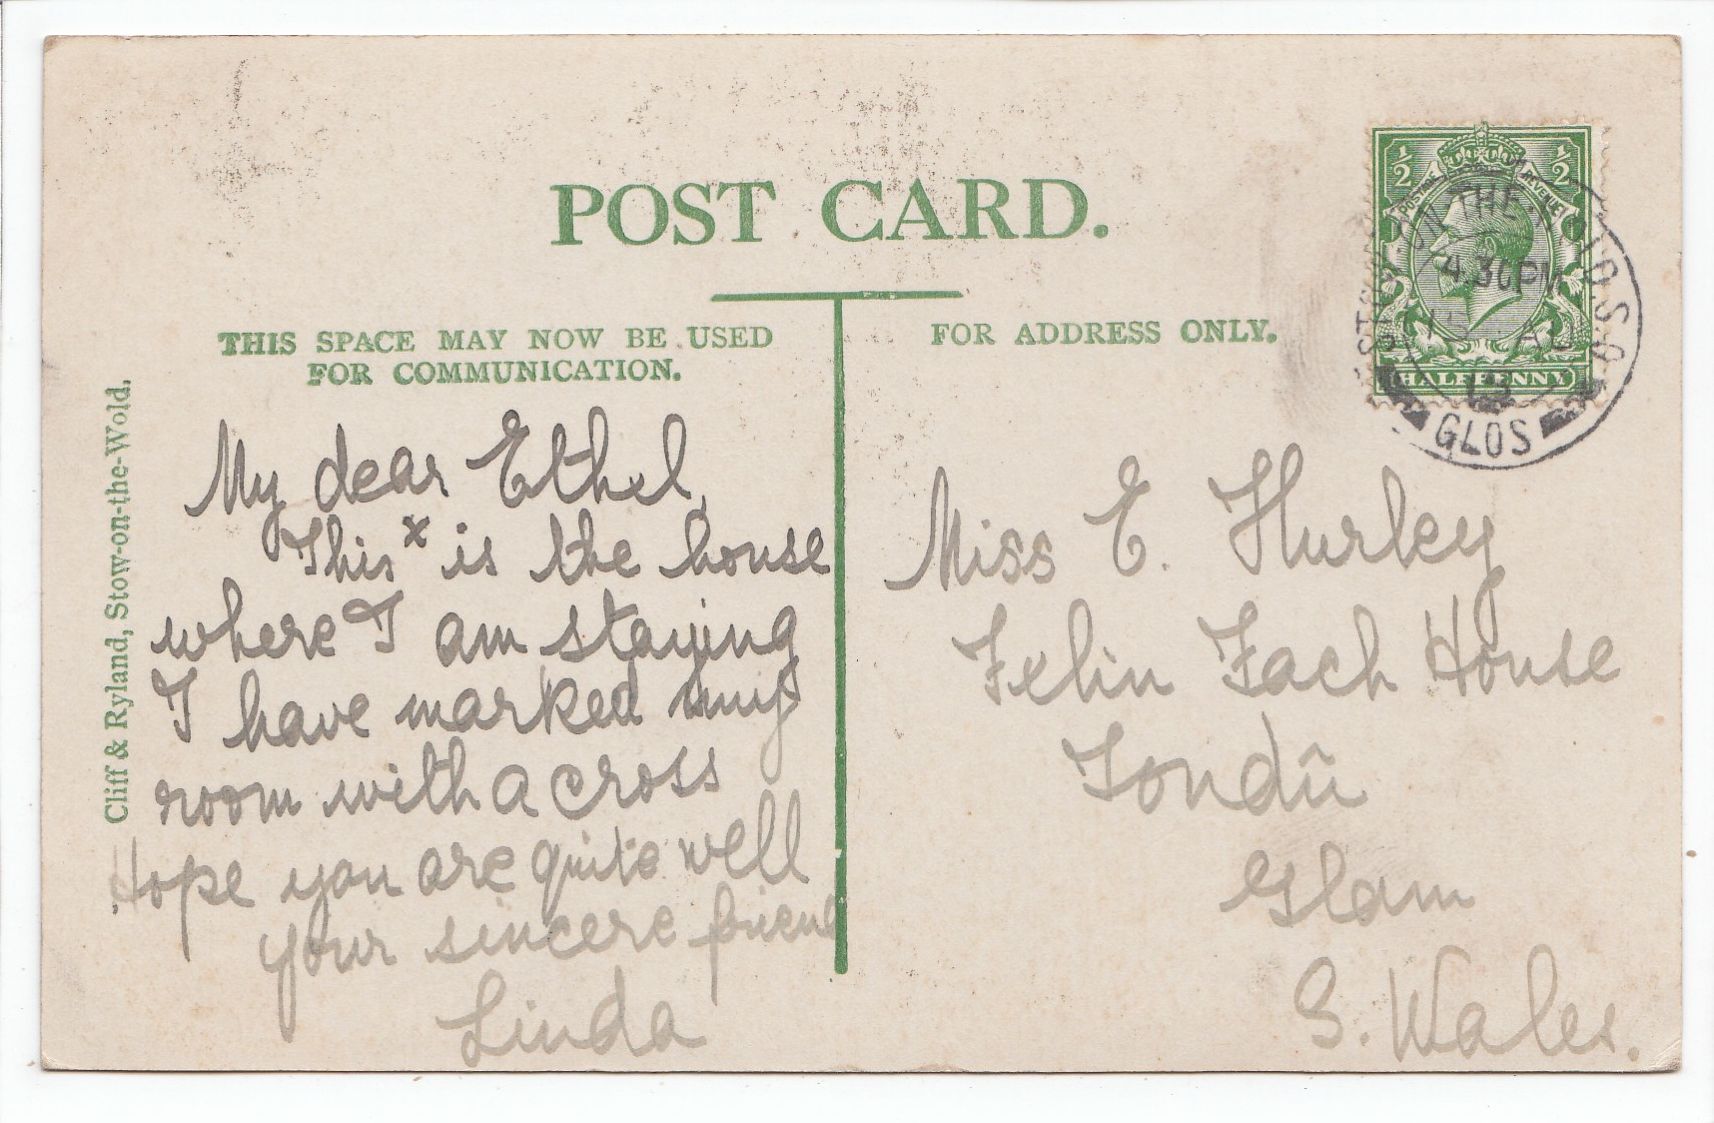 POST CARD.
THIS SPACE MAY NOW BE USED
FOR COMMUNICATION.
FOR ADDRESS ONLY.
Cliff & Ryland, Stow-on-the-Wold.
My dear Ethel,
This x is the house
where I am staying
I have marked my
room with a cross
Hope you are quite well
your sincere friend
Linda
Miss E. Hurley
Felin Fach House
Tondû
Glam
S. Wales.
½ ½
POSTAGE REVENUE
HALFPENNY
ON THE
4.30PM
AU
13
GLOS